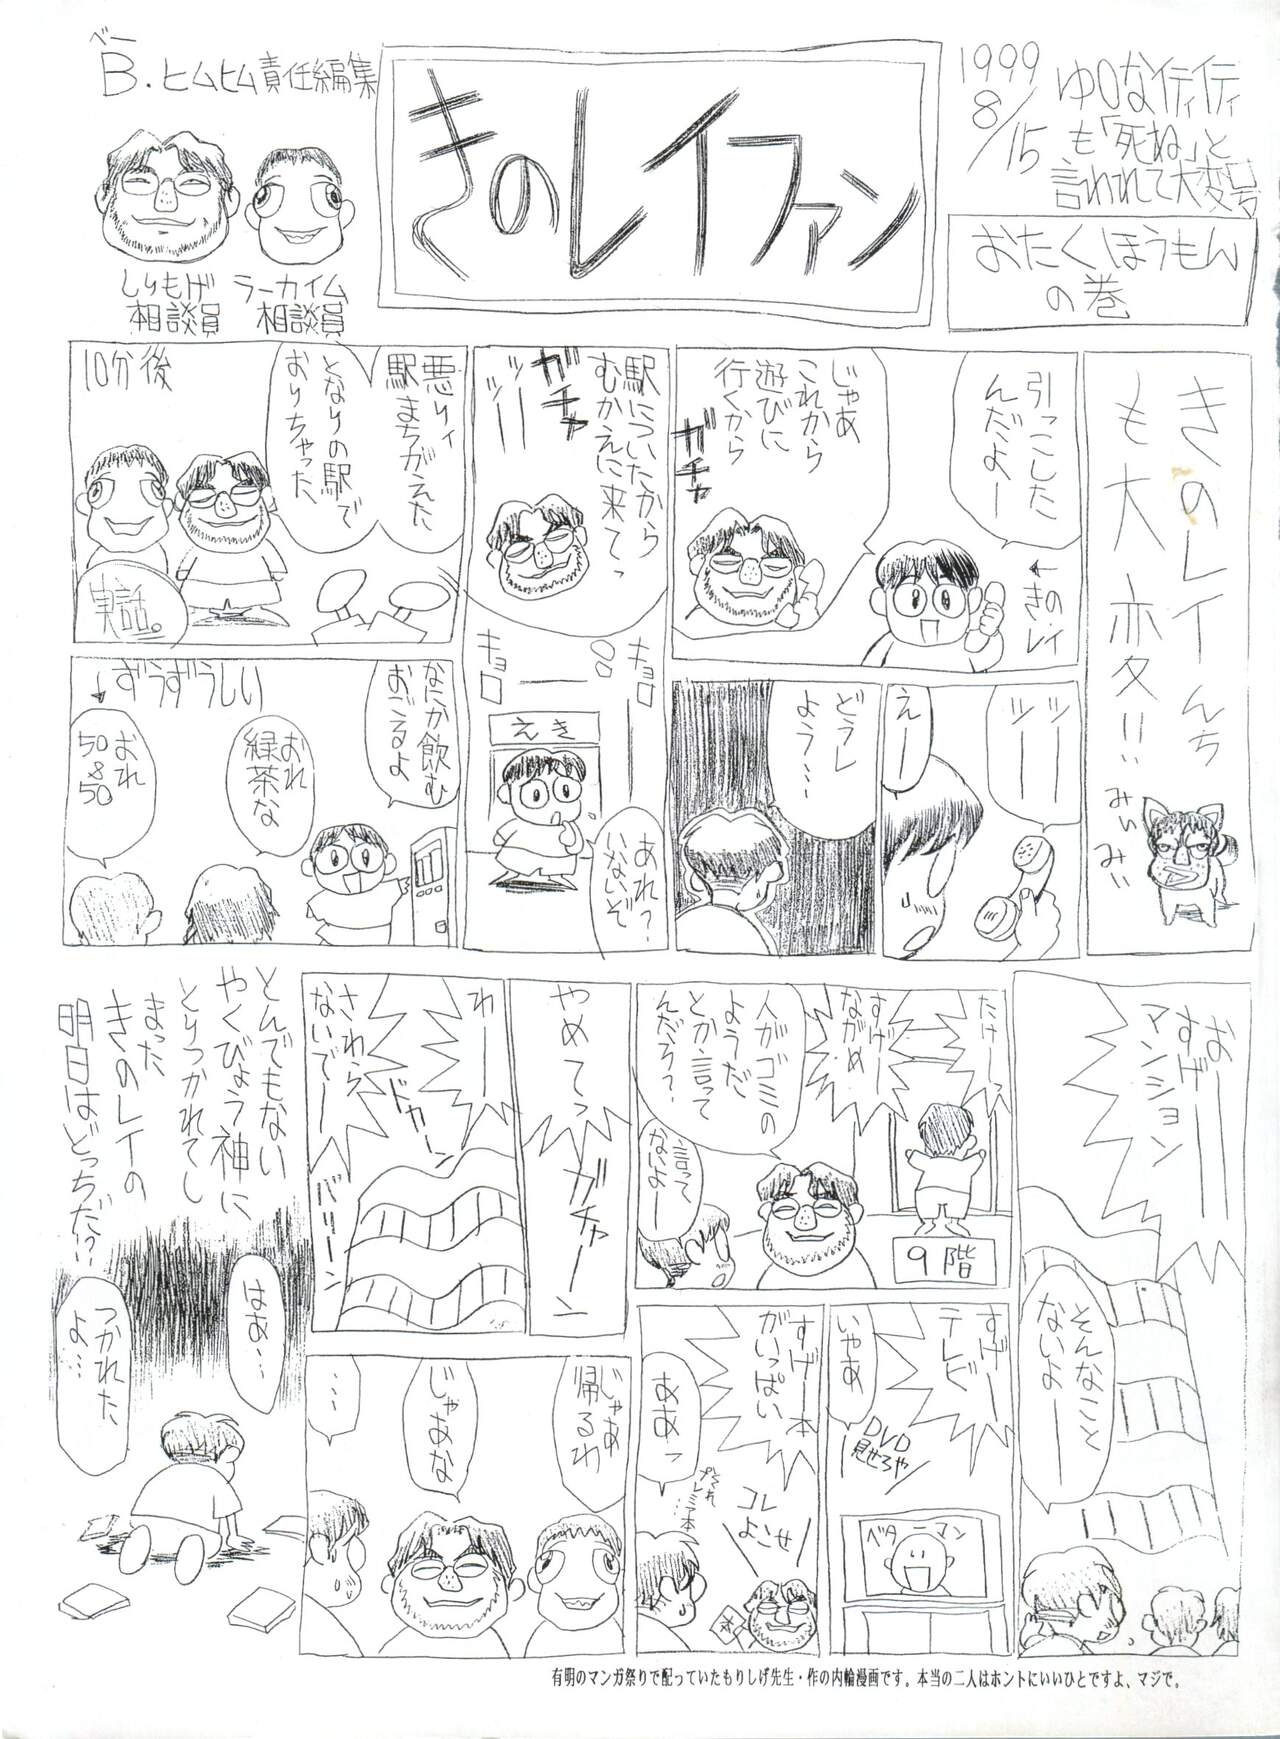 ベー
B.ヒムヒム責任編集
しりもげ
相談員
ラーカイム
相談員
きのレイファン
1999
8/15
ゆりなイティイティ
も「死ね」と
言われて大変号
おたくほうもん
の巻
きのレイんち
も大変!!
みぃみぃ
引っこした
んだよー
←きの・レイ
じゃあ
これから
遊びに
行くから
ガチャ
ツー
ツー
えー
どうし
よう…
駅についたから
むかえに来てっ
ガチャ
ガチャ
ツー
ツー
キョロ
キョロ
えき
あれ?
いないぞ
悪りィ
駅まちがえた
となりの駅で
おりちゃった
10分後
実話。
なにか飲む
おごるよ
おれ
緑茶な
おれ
50&50
←ずうずうしい
おー
すげー
マンション
そんなこと
ないよー
たけー
すげー
ながめ
人がゴミの
ようだ
とか言って
んだろ?
言って
ないよー
9階
すげー
テレビ
いやあ
DVD
見せろや
ベターマン
すげー本
がいっぱい
ああっ
コレ
よこせ
それ
プレミア本…
本
やめてっ
ガチャーン
わー
ドカーン
さわら
ないでー
バリーン
じゃあ
帰るわ
じゃあな
…
とんでもない
やくびょう神に
とりつかれてし
まった
きのレイの
明日はどっちだ!?
はあ…
つかれた
よ…
有明のマンガ祭りで配っていたもりしげ先生・作の内輪漫画です。本当の二人はホントにいいひとですよ、マジで。